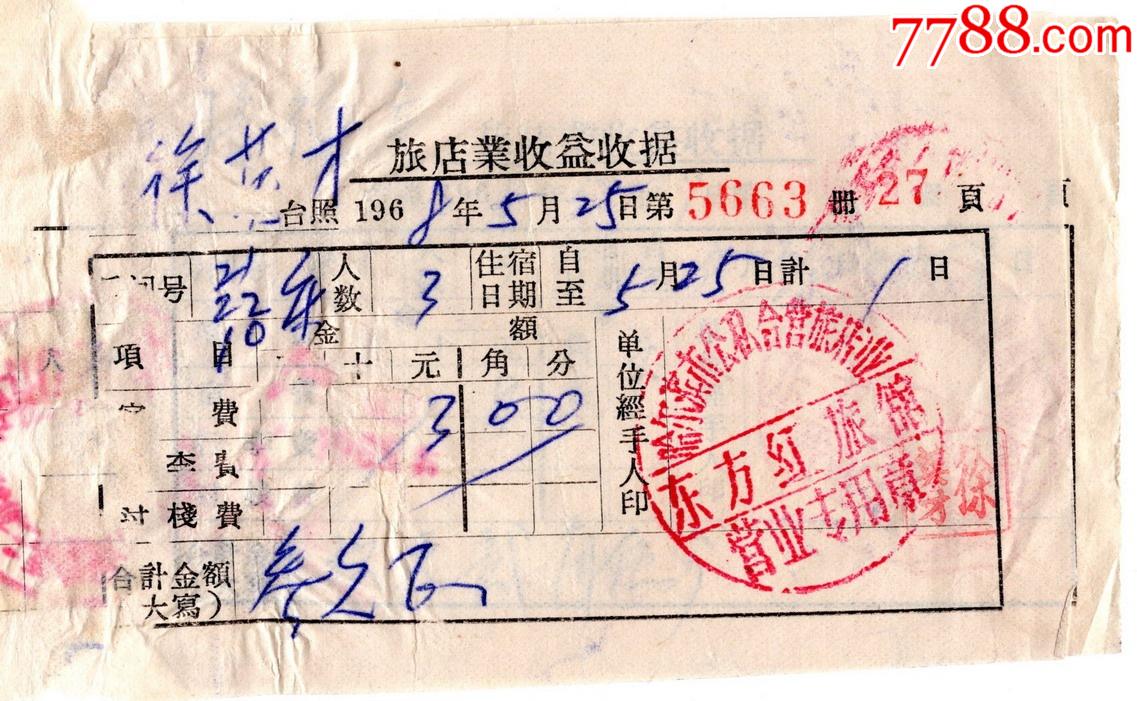 7788.com
徐 才
旅店業收益收据
台照 1968年5月25日第 5663 册 27 頁
号 人数 3 住宿日期 自至 5月25日計1日
項目 金額 十元角分
費 3 00
費
棧費
单位經手人印
哈尔滨市公私合营旅店业
东方红旅館
营业专用章
徐
合計金額
大寫）
叁元正